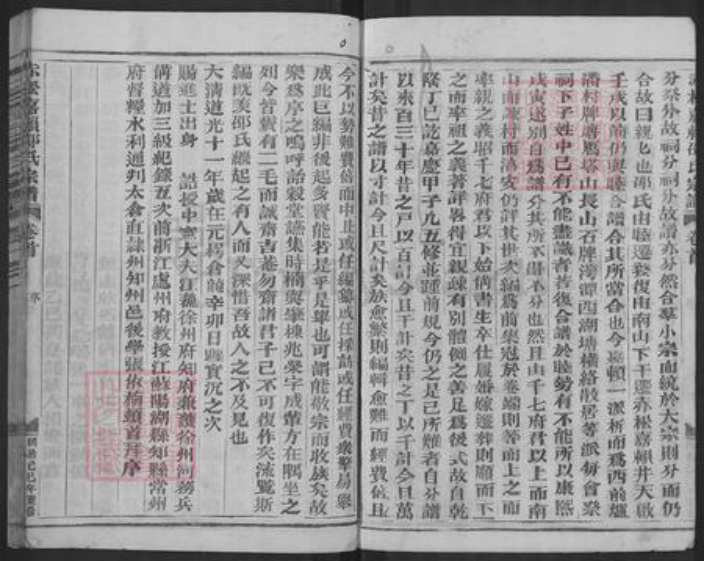 分祭分故祠分祠分故譜亦分然合羣小宗而統於大宗則分而仍
合故曰親也邵氏由睦遷婺復由南山下千遷赤松嘉賴井天啟
壬戌以前仍與睦合譜合其所當合也今嘉賴一派析而爲西前爐
潘村牌塘雁塔山長山石牌灣潭西湖塘橫絡散居等派每會祭
祠下子姓中已有不能盡識者若復合譜於睦勢有不能所以康熙
戊寅遂別自爲譜分其所不得不分也然且由千七府君以上而南
山而譚村而淳安仍詳其世次編爲前集冠於卷端則等而上之而
率親之義昭千七府君以下始備書生卒仕履婚嫁遷葬則順而下
之而率祖之義著詳畧得宜親疎有別體例之善足爲後式故自乾
隆丁巳訖嘉慶甲子凡五修並踵前規今仍之是已所難者自分譜
以來百三十年昔之戶以百計今且千計矣昔之丁以千計今且萬
計矣昔之譜以寸計今且尺計矣族愈繁則編輯愈難而經費愈且
今不以勢難費鉅而中止或任編纂或任採訪或任經費衆擎易舉
成此巨編非後起多賢能若是乎是舉也可謂能敬宗而收族矣故
樂爲序之嗚呼詒穀堂讌集時楠與肇棟兆榮字成輩方在隅坐之
列今皆鬢有二毛而誠齋吉菴勿齋諸君子已不可復作矣泫覽斯
編既羨邵氏繼起之有人而又深惜吾故人之不及見也
大清道光十一年歲在元黓倉龍辛卯日躔實沉之次
賜進士出身 誥授中憲大夫江蘇徐州府知府兼護徐州河務兵
備道加三級紀錄五次前浙江處州府教授江蘇陽湖縣知縣常州
府督糧水利通判太倉直隸州知州邑後學張作楠頓首拜序
赤松嘉賴邵氏宗譜 卷首 序